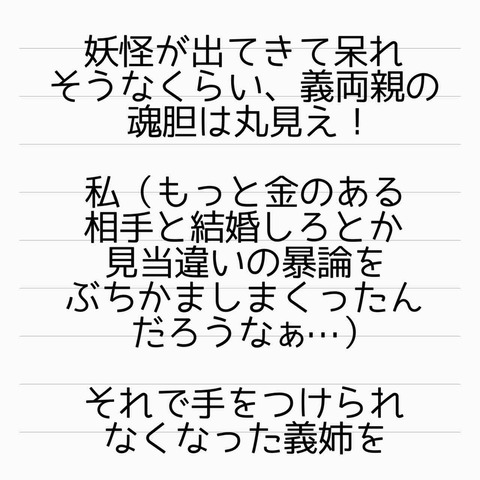 妖怪が出てきて呆れ
そうなくらい、義両親の
魂胆は丸見え！
私（もっと金のある
相手と結婚しろとか
見当違いの暴論を
ぶちかましまくったん
だろうなぁ…）
それで手をつけられ
なくなった義姉を